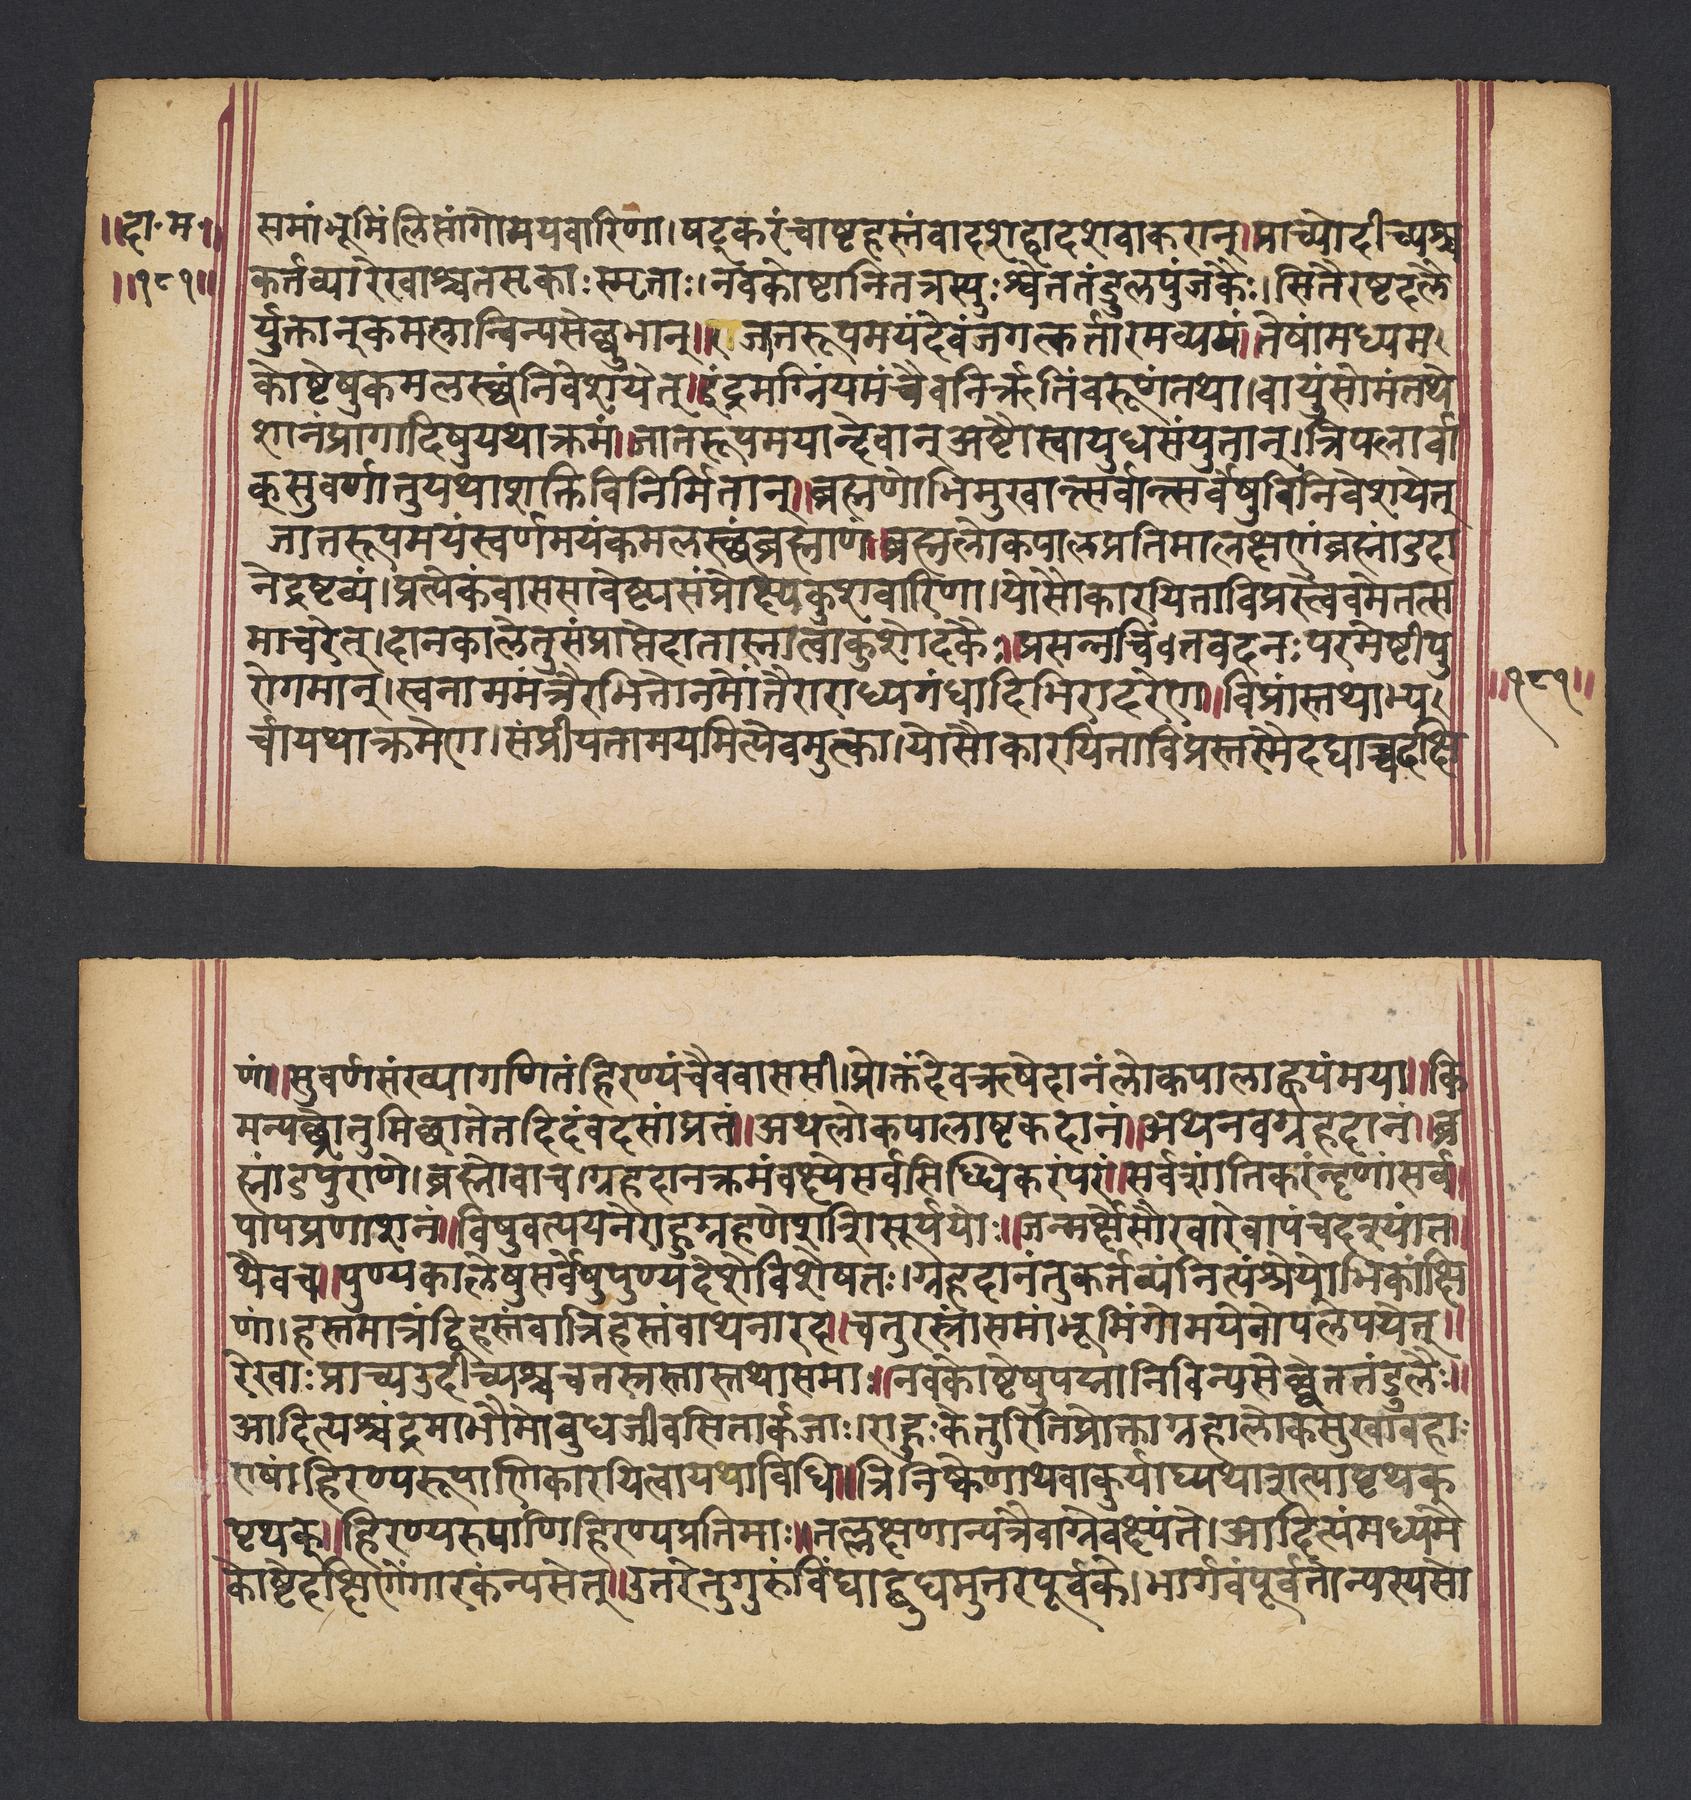 ॥दा॰म॰॥
॥१८१॥
समांभूमिंलिप्तांगोमयवारिणा।षट्करंचाष्टहस्तंवादशद्वादशवाकरान्।प्राच्योदीच्यश्च
कर्तव्यारेखाश्चतस्रकाःस्मृताः।नवकोष्टानितत्रस्युःश्वेततंडुलपुंजकैः।सितैरष्टदलै
र्युक्तानुकमस्तान्विन्यसेच्छुभान्॥जातरूपमयंदेवंजगत्कर्तारमव्ययं॥तेषांमध्यम
कोष्टेषुकमलस्छंनिवेशयेत्॥इंद्रमग्निंयमंचैवनिर्ऋतिंवरूणंतथा।वायुंसोमंतथे
शानंप्रागादिषुयथाक्रमं॥जातरूपमयान्देवान्अष्टौस्वायुधसंयुतान्।त्रिपलार्वा
कसुवर्णातुयथाशक्तिविनिर्मितान्॥ब्रह्मणोभिमुखान्त्सर्वान्त्सर्वेषुविनिवेशयेत्
जातरूपमयंस्वर्णमयंकमलस्छंब्रह्माणं॥ब्रह्मलोकपालप्रतिमालक्षणंब्रह्मांडदा
नेद्रष्टव्यं।प्रत्येकंवाससावेष्ट्यसंप्रोक्ष्यकुशवारिणा।योसौकारयिताविप्रस्त्वेवमेतत्स
माचरेत्।दानकालेतुसंप्राप्तेदातास्नात्वाकुशोदकैः॥प्रसन्नचिततवदनःपरमेष्टीपु
रोगमान्।स्वनाममंत्रैरभितोनमोंतैराराध्यगंधादिभिरादरेण॥विप्रांस्तथाभ्य
र्चायथाक्रमेण।संप्रीयतामयमित्येवमुत्का।योसौकारयिताविप्रस्तस्मैदद्याच्चदक्षि
॥१८१॥
णां॥सुवर्णसंख्यागणितंहिरण्यंचैववाससी।प्रोक्तंदेवऋषेदानंलोकपालाह्वयंमया॥कि
मन्यच्छ्रोतुमिछातेतदिदंवदसांप्रतं॥अथलोकपालाष्टकदानं॥अथनवग्रहदानं॥ब्र
ह्मांडपुराणे।ब्रह्मोवाच।ग्रहदानक्रमंवक्ष्येसर्वसिध्धिकरंपरं॥सर्वशांतिकरंनृणांसर्व
पापप्रणाशनं॥विषुवत्ययनेराहुग्रहणेशशिसूर्ययोः॥जन्मर्क्षेसौरवारेवापंचदश्यांत
थैवच॥पुण्यकालेषुसर्वेषुपुण्यदेशेविशेषतः।ग्रहदानंतुकर्तव्यंनित्यंश्रेयोभिकांक्षि
णां।हस्तमात्रंद्विहस्तंवात्रिहस्तंवाथनारद।चतुरस्त्रांसमांभूमिंगोमयेनोपलेपयेत्॥
रेखाःप्राच्यउदीच्यश्चचतस्रस्तास्तथासमाः॥नवकोष्टेषुपद्मानिविन्यसेच्छ्वेततंडुलैः॥
आदित्यश्चंद्रमाभौमोबुधजीवसितार्कजाः।राहुःकेतुरितिप्रोक्ताग्रहालोकसुखावहाः
एषांहिरण्यरूपाणिकारयित्वायथाविधि॥त्रिनिष्केणाथवाकुर्याद्यथाशत्यापृथक्
पृथक्॥हिरण्यरुपाणिहिरण्यप्रतिमाः॥तल्लक्षणान्यत्रैवाग्रेवक्ष्यंते।आदित्यंमध्यमे
कोष्टेदक्षिणेंगारकंन्यसेत्॥उत्तरेतुगुरुंविंद्याद्बुधमुत्तरपूर्वके।भार्गवंपूर्वतोन्यस्यसो